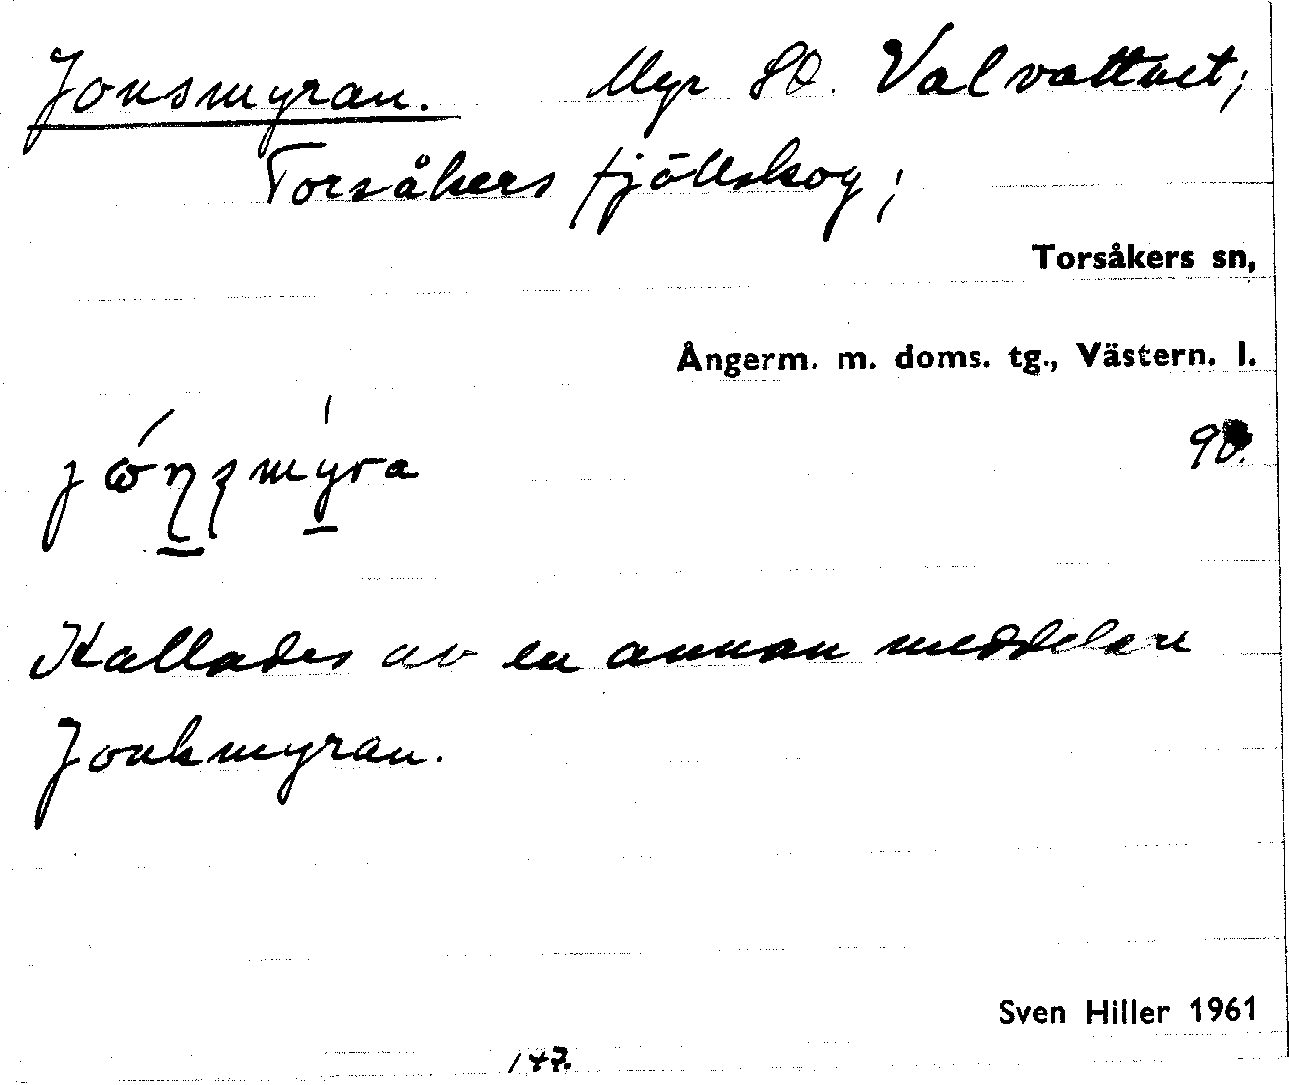 Jonsmyran. Myr SO. Valvattnet;
Torsåkers fjällskog;
Torsåkers sn,
Ångerm. m. doms. tg., Västern. l.
Kallades av en annan meddelare
Jonkmyran.
Sven Hiller 1961
147.